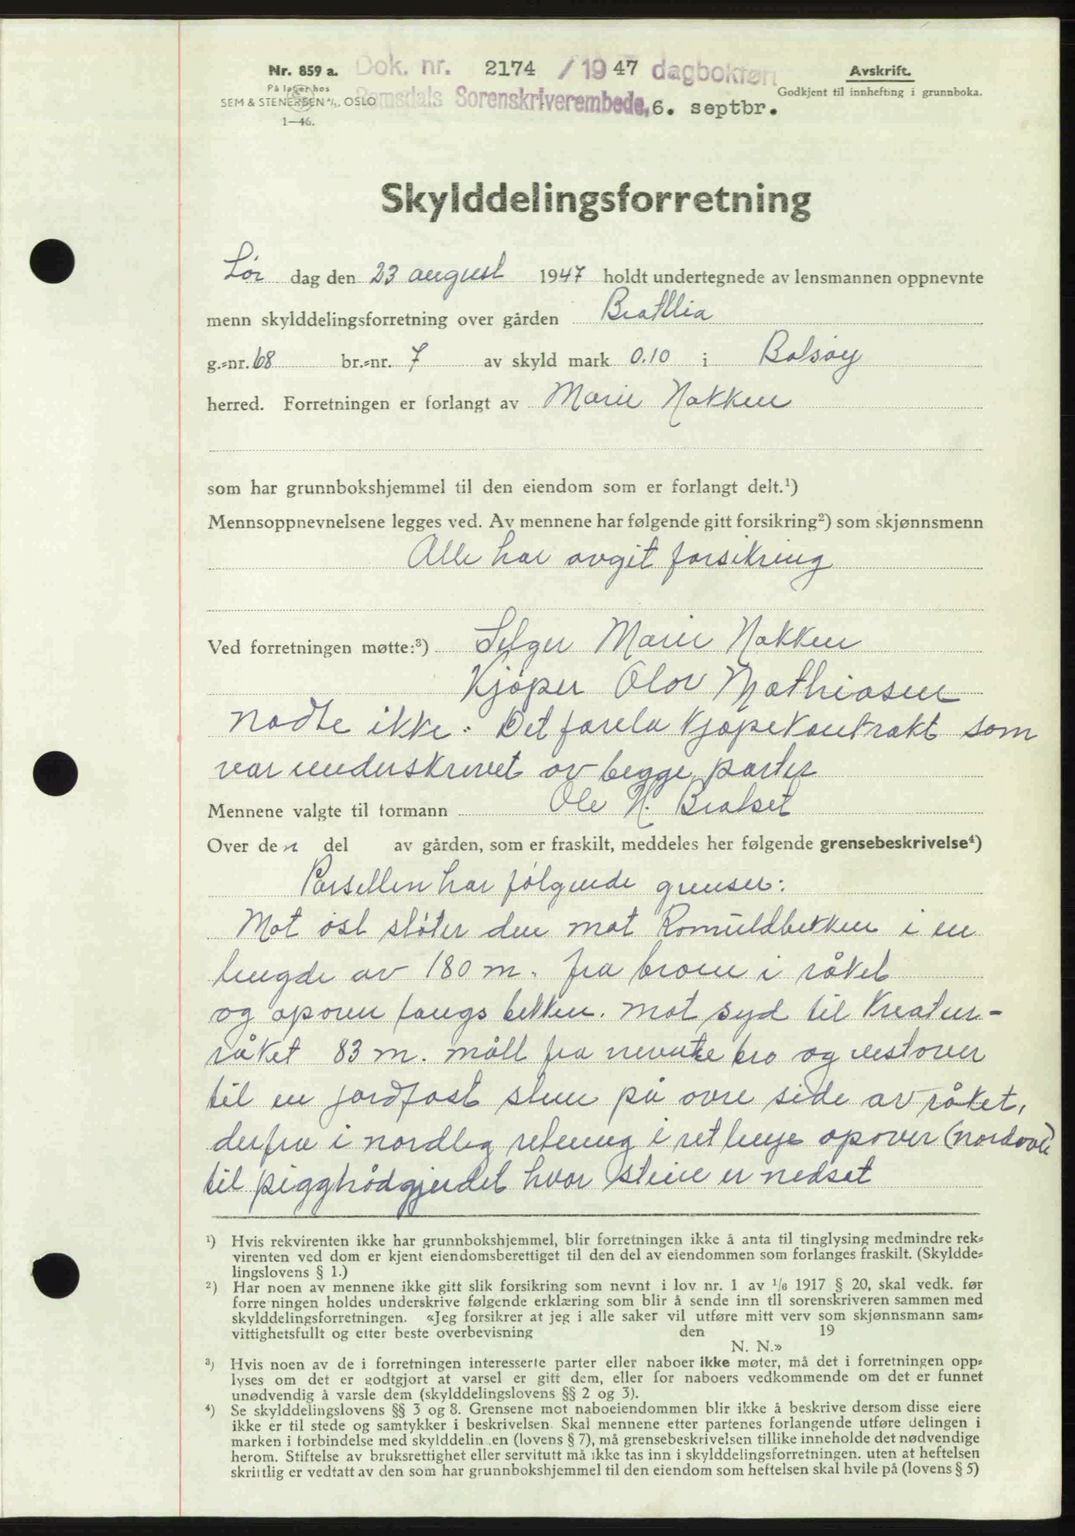 Nr. 859 a. Dok. nr. 2174 / 1947 dagbokført
På lager hos
SEM & STENERSEN A/S. OSLO
1—46.
Romsdals Sorenskriverembede, 6. septbr.
Avskrift.
Godkjent til innhefting i grunnboka.
Skylddelingsforretning
Lør dag den 23 august 1947 holdt undertegnede av lensmannen oppnevnte
menn skylddelingsforretning over gården Brattlia
g.=nr. 68 br.=nr. 7 av skyld mark 0.10 i Bolsøy
herred. Forretningen er forlangt av Marie Nakken
som har grunnbokshjemmel til den eiendom som er forlangt delt.¹)
Mennsoppnevnelsene legges ved. Av mennene har følgende gitt forsikring²) som skjønnsmenn
Alle har avgit forsikring
Ved forretningen møtte:³) Selger Marie Nakken
Kjøper Olov Mathiasen
møtte ikke. Det forela kjøpekontrakt som
var underskrevet av begge parter
Mennene valgte til formann Ole N. Bralset
Over den del av gården, som er fraskilt, meddeles her følgende grensebeskrivelse⁴)
Parsellen har følgende grenser:
Mot øst støter den mot Romuldbekken i en
lengde av 180 m. fra broen i råket
og opover langs bekken. mot syd til Kreatur-
råket 83 m. målt fra nevnte bro og vestover
til en jordfast sten på øvre side av råket,
derfra i nordleg retning i ret linje opover (nordover)
til piggtrådgjerdet hvor stein er nedsat
¹) Hvis rekvirenten ikke har grunnbokshjemmel, blir forretningen ikke å anta til tinglysing medmindre rek=
virenten ved dom er kjent eiendomsberettiget til den del av eiendommen som forlanges fraskilt. (Skyldde=
lingslovens § 1.)
²) Har noen av mennene ikke gitt slik forsikring som nevnt i lov nr. 1 av 1/6 1917 § 20, skal vedk. før
forre ningen holdes underskrive følgende erklæring som blir å sende inn til sorenskriveren sammen med
skylddelingsforretningen. «Jeg forsikrer at jeg i alle saker vil utføre mitt verv som skjønnsmann sam=
vittighetsfullt og etter beste overbevisning den 19
N. N.»
³) Hvis noen av de i forretningen interesserte parter eller naboer ikke møter, må det i forretningen opp=
lyses om det er godtgjort at varsel er gitt dem, eller for naboers vedkommende om det er funnet
unødvendig å varsle dem (skylddelingslovens §§ 2 og 3).
⁴) Se skylddelingslovens §§ 3 og 8. Grensene mot naboeiendommen blir ikke å beskrive dersom disse eiere
ikke er til stede og samtykker i beskrivelsen. Skal mennene etter partenes forlangende utføre delingen i
marken i forbindelse med skylddelin en (lovens § 7), må grensebeskrivelsen tillike inneholde det nødvendige
herom. Stiftelse av bruksrettighet eller servitutt må ikke tas inn i skylddelingsforretningen. uten at heftelsen
skriftlig er vedtatt av den som har grunnbokshjemmel til den eiendom som heftelsen skal hvile på (lovens § 5)